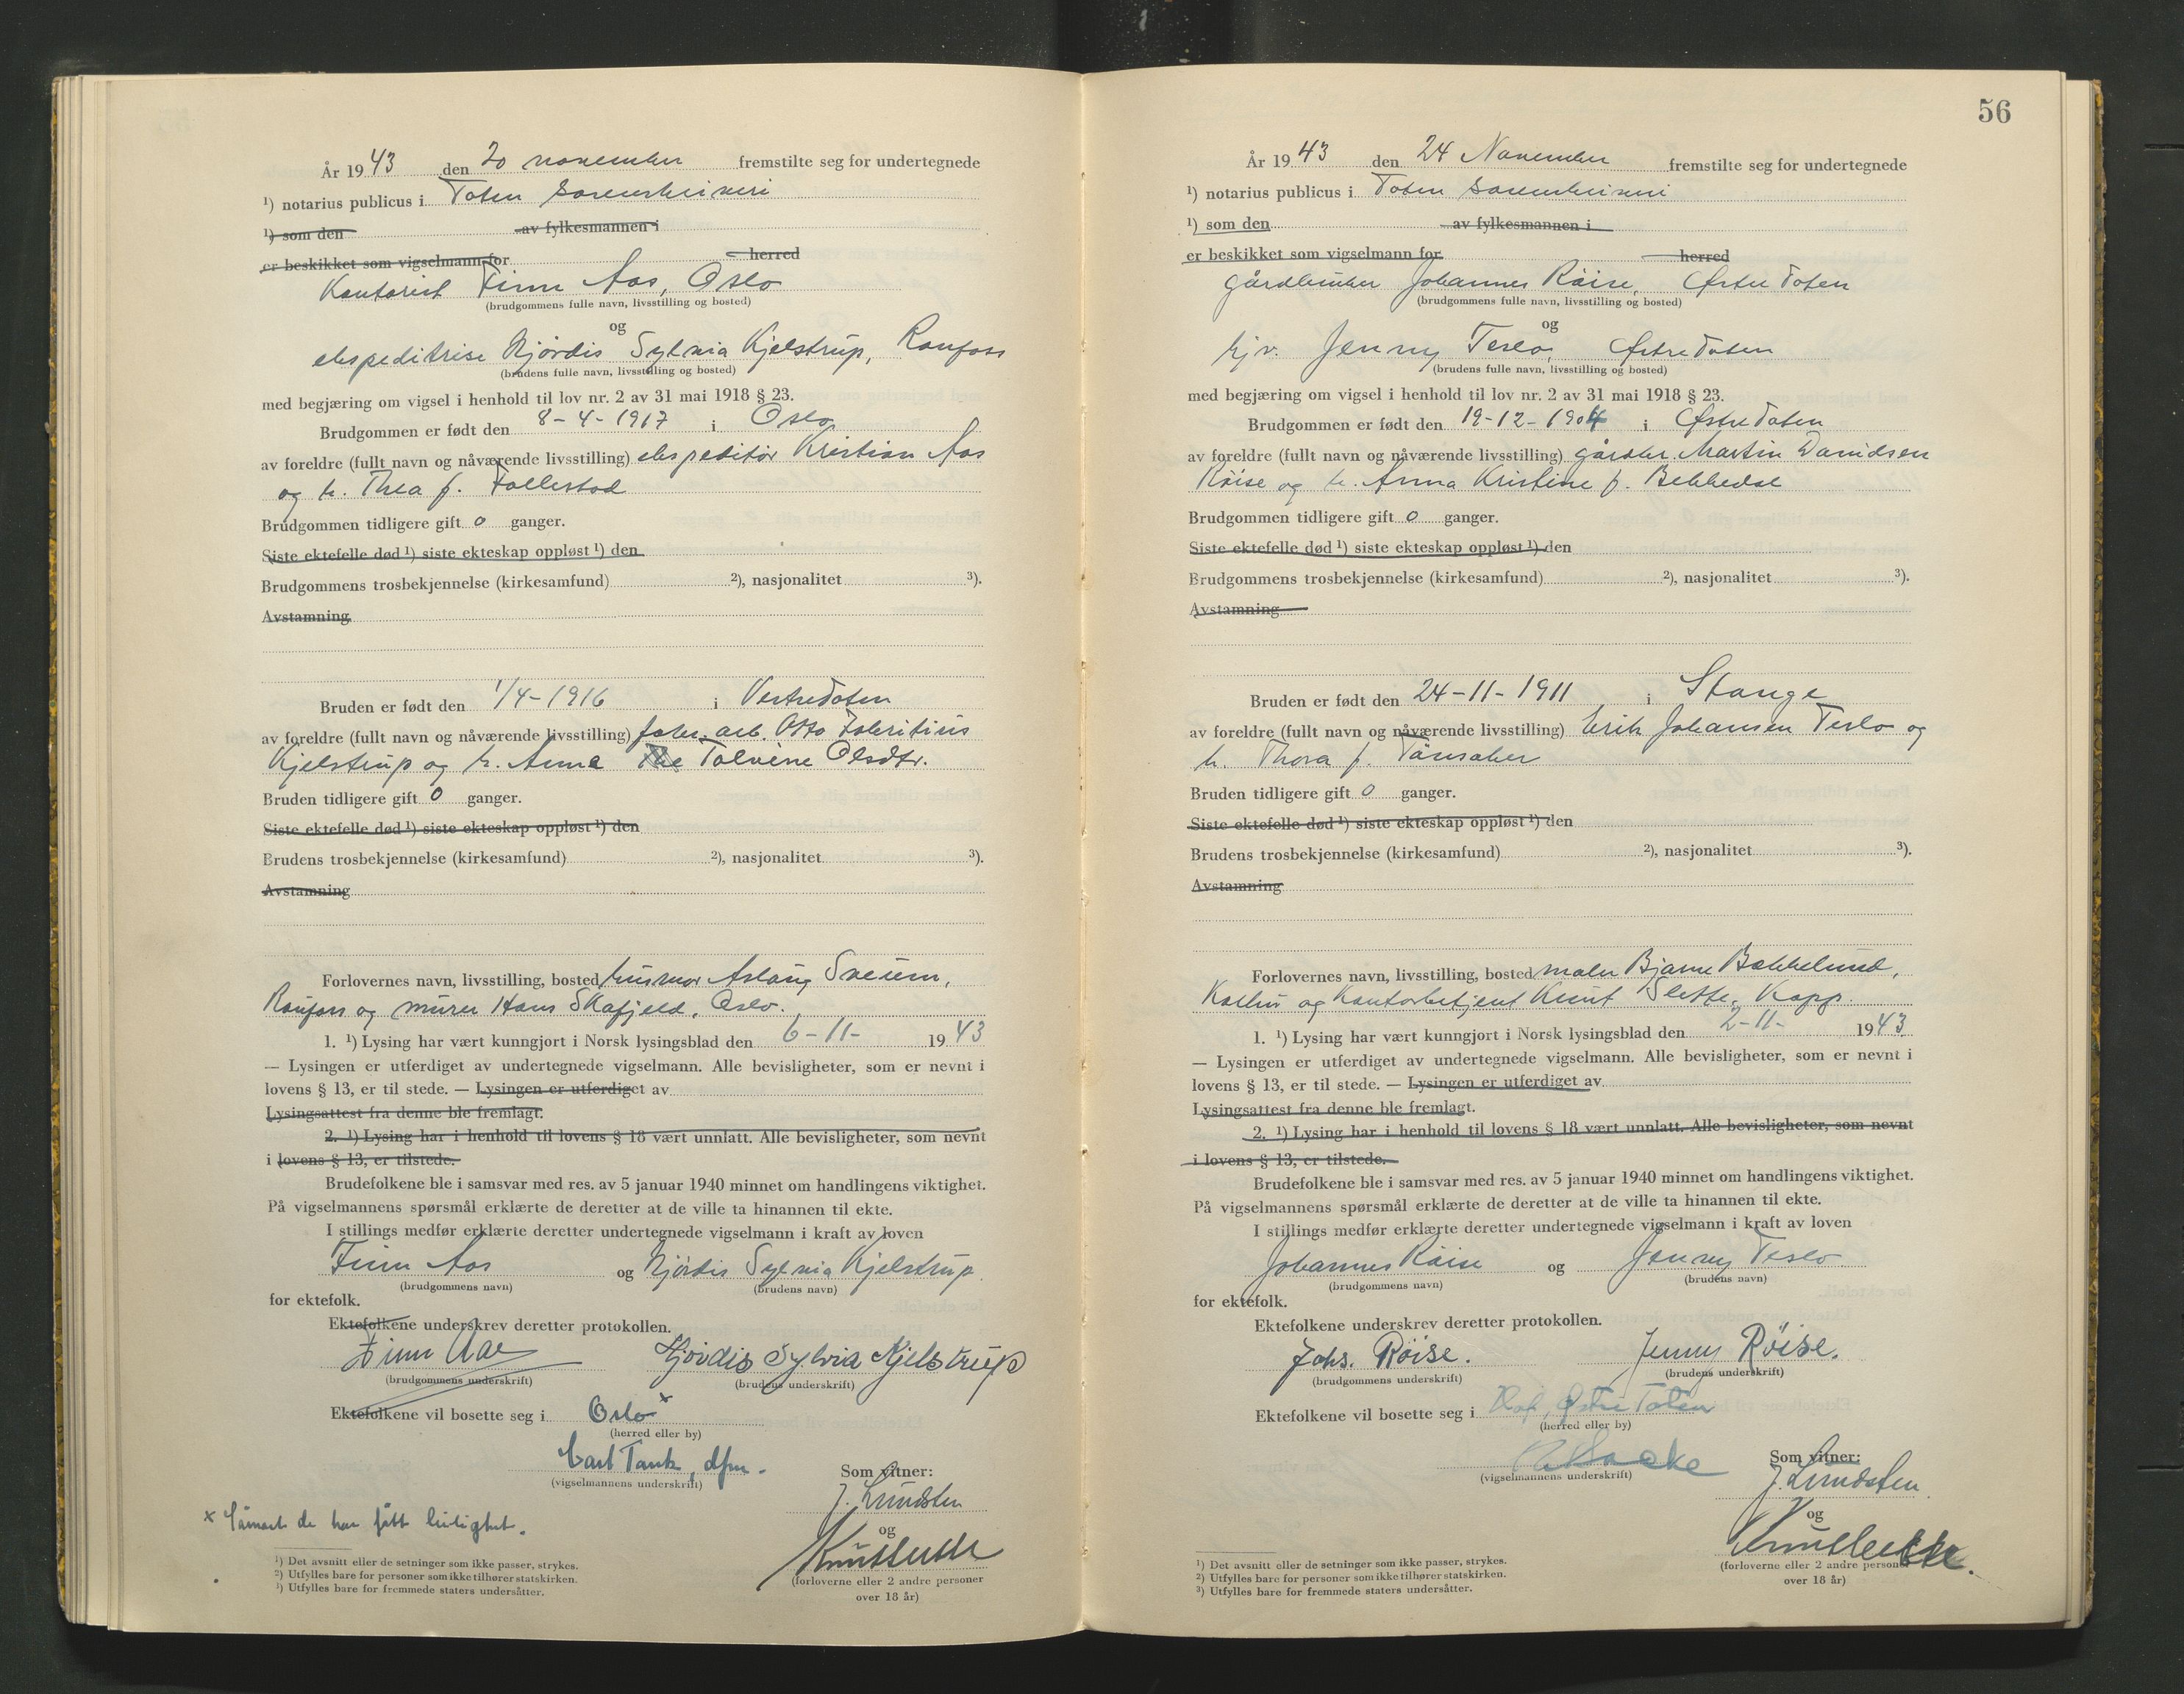 År 1943 den 20 november fremstilte seg for undertegnede
¹) notarius publicus i Toten sorenskriveri
¹) som den av fylkesmannen i
er beskikket som vigselmann for herred
Kontorist Finn Aas, Oslo
(brudgommens fulle navn, livsstilling og bosted)
og
ekspeditrise Hjördis Sylvia Kjelstrup, Raufoss
(brudens fulle navn, livsstilling og bosted)
med begjæring om vigsel i henhold til lov nr. 2 av 31 mai 1918 § 23.
Brudgommen er født den 8-4-1917 i Oslo
av foreldre (fullt navn og nåværende livsstilling) ekspeditör Kristian Aas
og h. Thea f. Follestad
Brudgommen tidligere gift 0 ganger.
Siste ektefelle død ¹) siste ekteskap oppløst ¹) den
Brudgommens trosbekjennelse (kirkesamfund) ²), nasjonalitet ³).
Avstamning
Bruden er født den 1/4-1916 i Vestre Toten
av foreldre (fullt navn og nåværende livsstilling) fabr. arb. Otto
Kjelstrup og h. Anna Tolvine Olsdtr.
Bruden tidligere gift 0 ganger.
Siste ektefelle død ¹) siste ekteskap oppløst ¹) den
Brudens trosbekjennelse (kirkesamfund) ²), nasjonalitet ³).
Avstamning
Forlovernes navn, livsstilling, bosted husmor Aslaug Sveum,
Raufoss og murer Hans Skafjeld, Oslo.
1. ¹) Lysing har vært kunngjort i Norsk lysingsblad den 6-11- 1943
— Lysingen er utferdiget av undertegnede vigselmann. Alle bevisligheter, som er nevnt i
lovens § 13, er til stede. — Lysingen er utferdiget av
Lysingsattest fra denne ble fremlagt.
2. ¹) Lysing har i henhold til lovens § 18 vært unnlatt. Alle bevisligheter, som nevnt
i lovens § 13, er tilstede.
Brudefolkene ble i samsvar med res. av 5 januar 1940 minnet om handlingens viktighet.
På vigselmannens spørsmål erklærte de deretter at de ville ta hinannen til ekte.
I stillings medfør erklærte deretter undertegnede vigselmann i kraft av loven
Finn Aas og Hjördis Sylvia Kjelstrup
(brudgommens navn) (brudens navn)
for ektefolk.
Ektefolkene underskrev deretter protokollen.
Finn Aas Hjördis Sylvia Kjelstrup
(brudgommens underskrift) (brudens underskrift)
Ektefolkene vil bosette seg i Oslo x
(herred eller by)
Carl Tank, dfm.
(vigselmannens underskrift)
Som vitner:
J. Lundsten
og
(forloverne eller 2 andre personer
over 18 år)
x Såsnart de har fått leilighet.
¹) Det avsnitt eller de setninger som ikke passer, strykes.
²) Utfylles bare for personer som ikke tilhører statskirken.
³) Utfylles bare for fremmede staters undersåtter.
56
År 1943 den 24 November fremstilte seg for undertegnede
¹) notarius publicus i Toten sorenskriveri
¹) som den av fylkesmannen i
er beskikket som vigselmann for herred
gårdbruker Johannes Röise, Østre Toten
(brudgommens fulle navn, livsstilling og bosted)
og
hjv. Jenny Teslo, Østre Toten
(brudens fulle navn, livsstilling og bosted)
med begjæring om vigsel i henhold til lov nr. 2 av 31 mai 1918 § 23.
Brudgommen er født den 19-12-1904 i Østre Toten
av foreldre (fullt navn og nåværende livsstilling) gårdbr. Martin Davidsen
Röise og h. Anna Kristine f. Bekkedal
Brudgommen tidligere gift 0 ganger.
Siste ektefelle død ¹) siste ekteskap oppløst ¹) den
Brudgommens trosbekjennelse (kirkesamfund) ²), nasjonalitet ³).
Avstamning
Bruden er født den 24-11-1911 i Stange
av foreldre (fullt navn og nåværende livsstilling) Erik Johansen Teslo og
h. Thora f.
Bruden tidligere gift 0 ganger.
Siste ektefelle død ¹) siste ekteskap oppløst ¹) den
Brudens trosbekjennelse (kirkesamfund) ²), nasjonalitet ³).
Avstamning
Forlovernes navn, livsstilling, bosted maler Bjarne Bækkelund,
og Kontorbetjent Knut Slette, Kapp.
1. ¹) Lysing har vært kunngjort i Norsk lysingsblad den 2-11- 1943
— Lysingen er utferdiget av undertegnede vigselmann. Alle bevisligheter, som er nevnt i
lovens § 13, er til stede. — Lysingen er utferdiget av
Lysingsattest fra denne ble fremlagt.
2. ¹) Lysing har i henhold til lovens § 18 vært unnlatt. Alle bevisligheter, som nevnt
i lovens § 13, er tilstede.
Brudefolkene ble i samsvar med res. av 5 januar 1940 minnet om handlingens viktighet.
På vigselmannens spørsmål erklærte de deretter at de ville ta hinannen til ekte.
I stillings medfør erklærte deretter undertegnede vigselmann i kraft av loven
Johannes Röise og Jenny Teslo
(brudgommens navn) (brudens navn)
for ektefolk.
Ektefolkene underskrev deretter protokollen.
Johs. Röise. Jenny Röise.
(brudgommens underskrift) (brudens underskrift)
Ektefolkene vil bosette seg i Hof, Østre Toten
(herred eller by)
(vigselmannens underskrift)
Som vitner:
J. Lundsten
og
(forloverne eller 2 andre personer
over 18 år)
¹) Det avsnitt eller de setninger som ikke passer, strykes.
²) Utfylles bare for personer som ikke tilhører statskirken.
³) Utfylles bare for fremmede staters undersåtter.